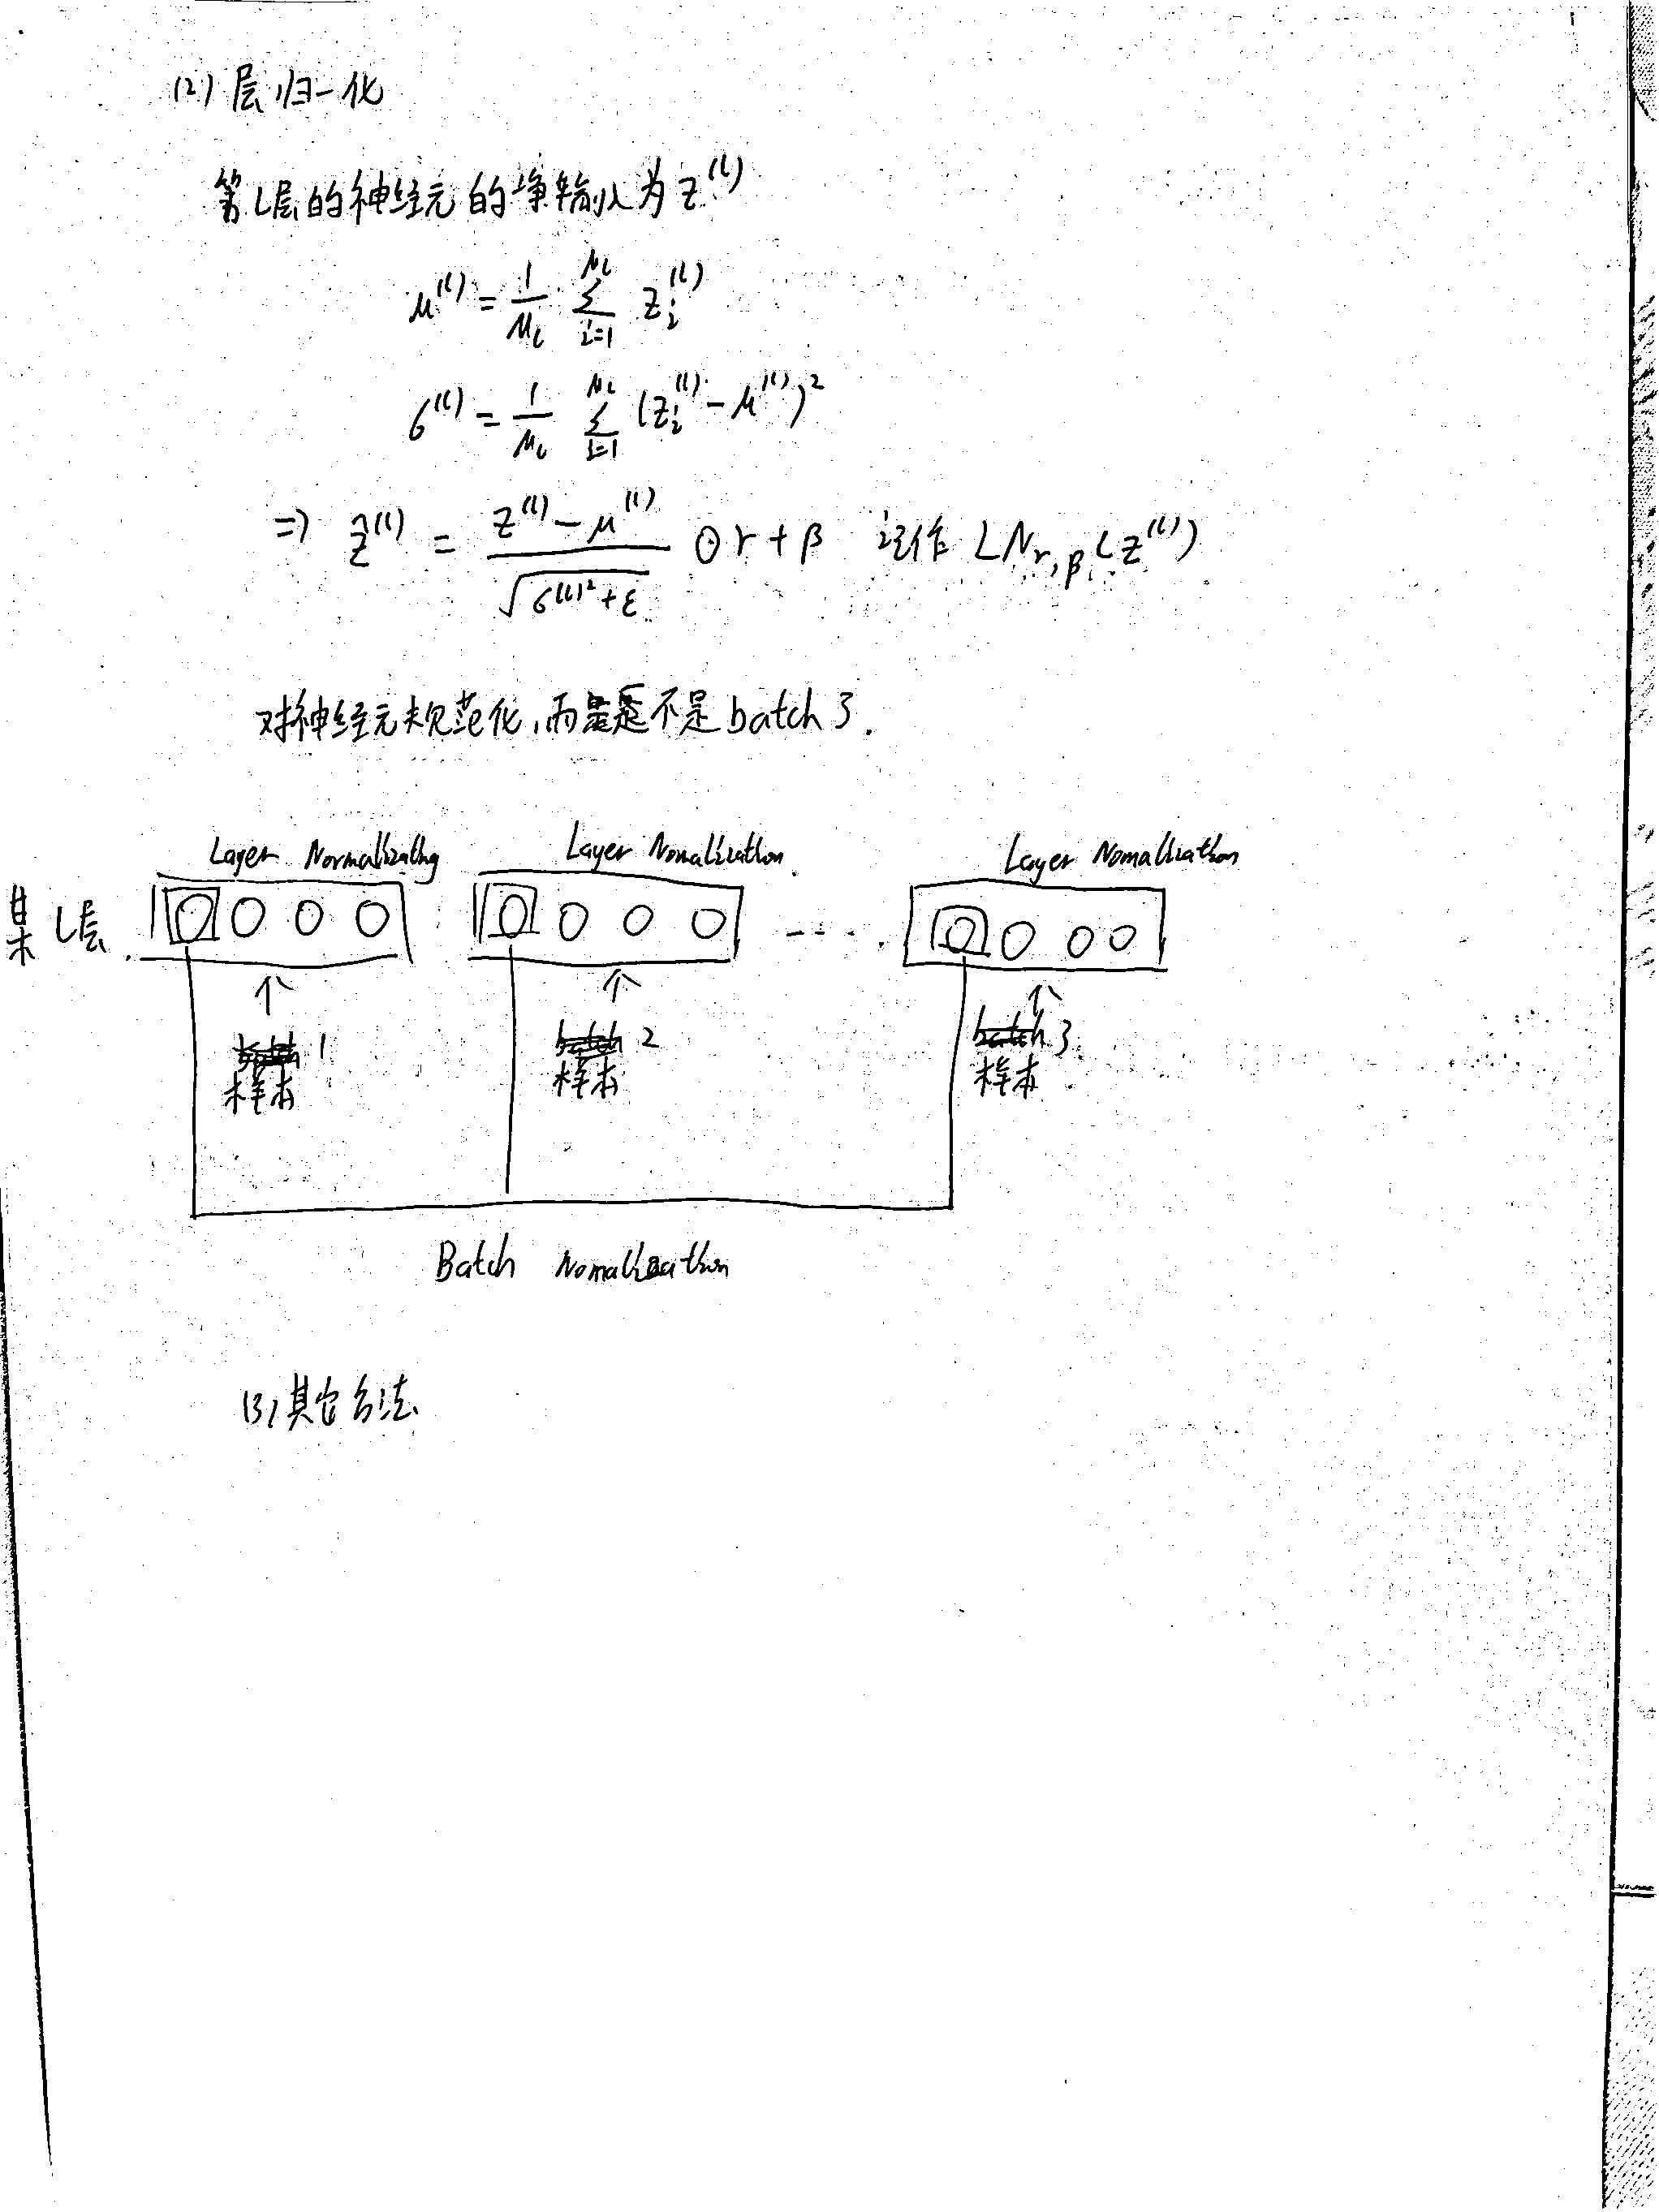 (2) 层归一化
第l层的神经元的净输入为 z^(l)
μ^(l) = 1/M_l ∑_{i=1}^{M_l} z_i^(l)
σ^(l) = 1/M_l ∑_{i=1}^{M_l} (z_i^(l) - μ^(l))^2
⇒ ẑ^(l) = (z^(l) - μ^(l)) / √(σ^(l)^2 + ε) ⊙ γ + β 记作 LN_{γ,β}(z^(l))
对神经元规范化,而是不是batch了.
Layer Normalizating Layer Nomalization Layer Nomalization
某 l层 ....
batch 1 batch 2 batch 3
样本 样本 样本
Batch Nomalization
(3) 其它方法